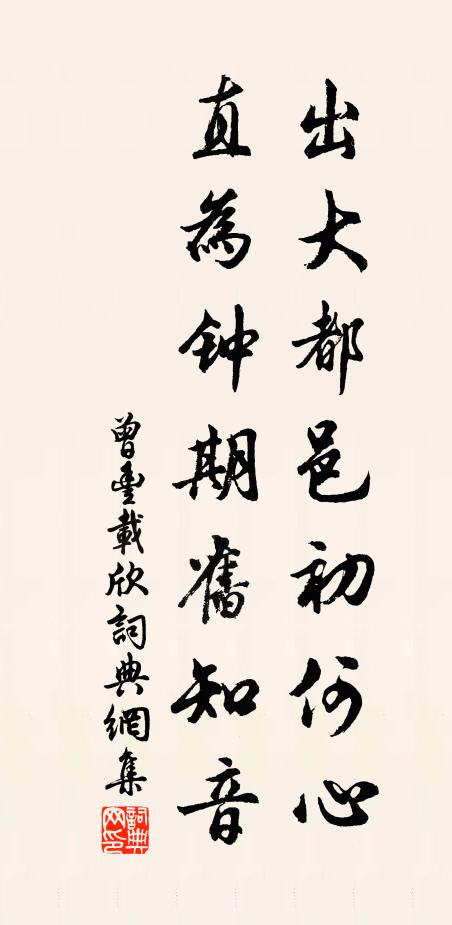 出大都邑初何心
直為钟期舊知音
曾豊載欣詞典網集
詞典
网印